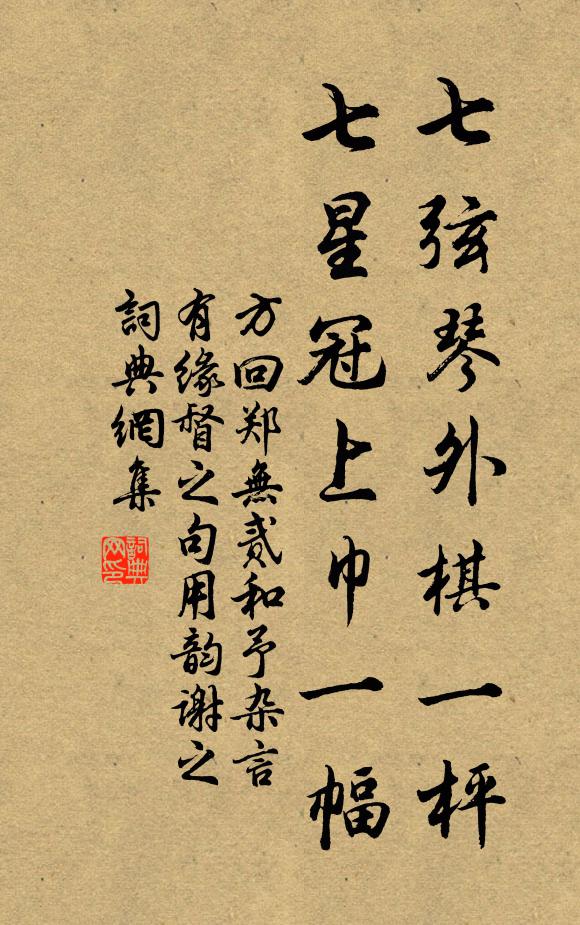 七弦琴外棋一枰
七星冠上巾一幅
方回郑無贰和予杂言
有缘督之句用韵谢之
詞典網集
詞典网印